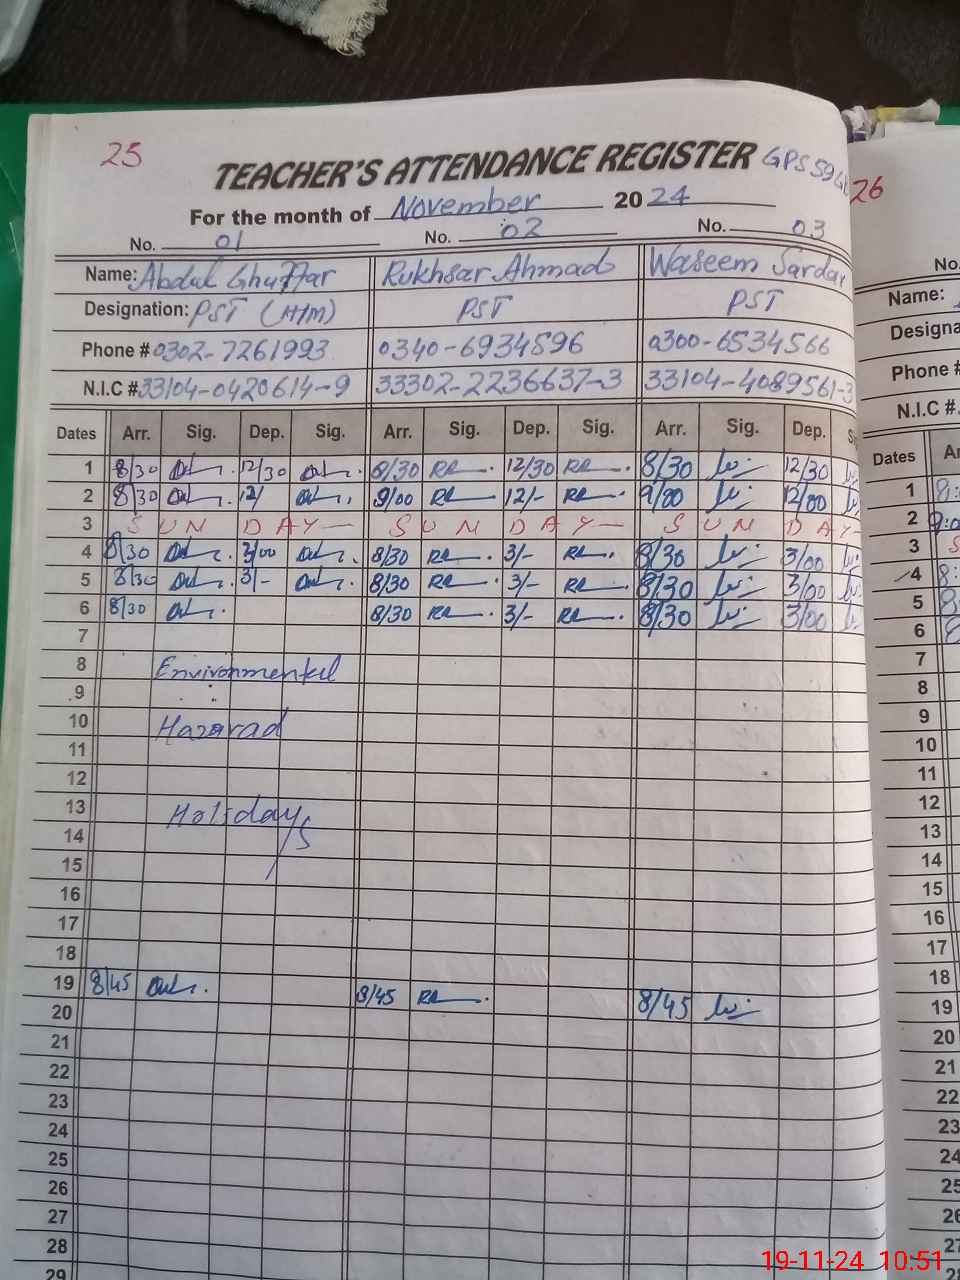 25
TEACHER'S ATTENDANCE REGISTER GPS 59
26
For the month of November 2024
No. 01 No. 02 No. 03
Name: Abdul Ghaffar Rukhsar Ahmad Waseem Sardar
Designation: PST (H/M) PST PST
Phone # 0302-7261993 0340-6934596 0300-6534566
N.I.C # 33104-0420614-9 33302-2236637-3 33104-4089561-3
Dates Arr. Sig. Dep. Sig. Arr. Sig. Dep. Sig. Arr. Sig. Dep.
1 8/30 12/30 8/30 RA 12/30 RA 8/30 12/30
2 8/30 12/ 9/00 RA 12/- RA 9/00 12/00
3 SUN DAY SUN DAY SUN DAY
4 8/30 3/00 8/30 RA 3/- RA 8/30 3/00
5 8/30 3/- 8/30 RA 3/- RA 8/30 3/00
6 8/30 8/30 RA 3/- RA 8/30 3/00
7
8 Environmental
9
10 Hazarad
11
12
13 Holiday/s
14
15
16
17
18
19 8/45 8/45 RA 8/45
20
21
22
23
24
25
26
27
28
29
No.
Name:
Phone #
N.I.C #
Dates
1
2
3
4
5
6
7
8
9
10
11
12
13
14
15
16
17
18
19
20
21
22
23
24
25
26
27
19-11-24 10:51